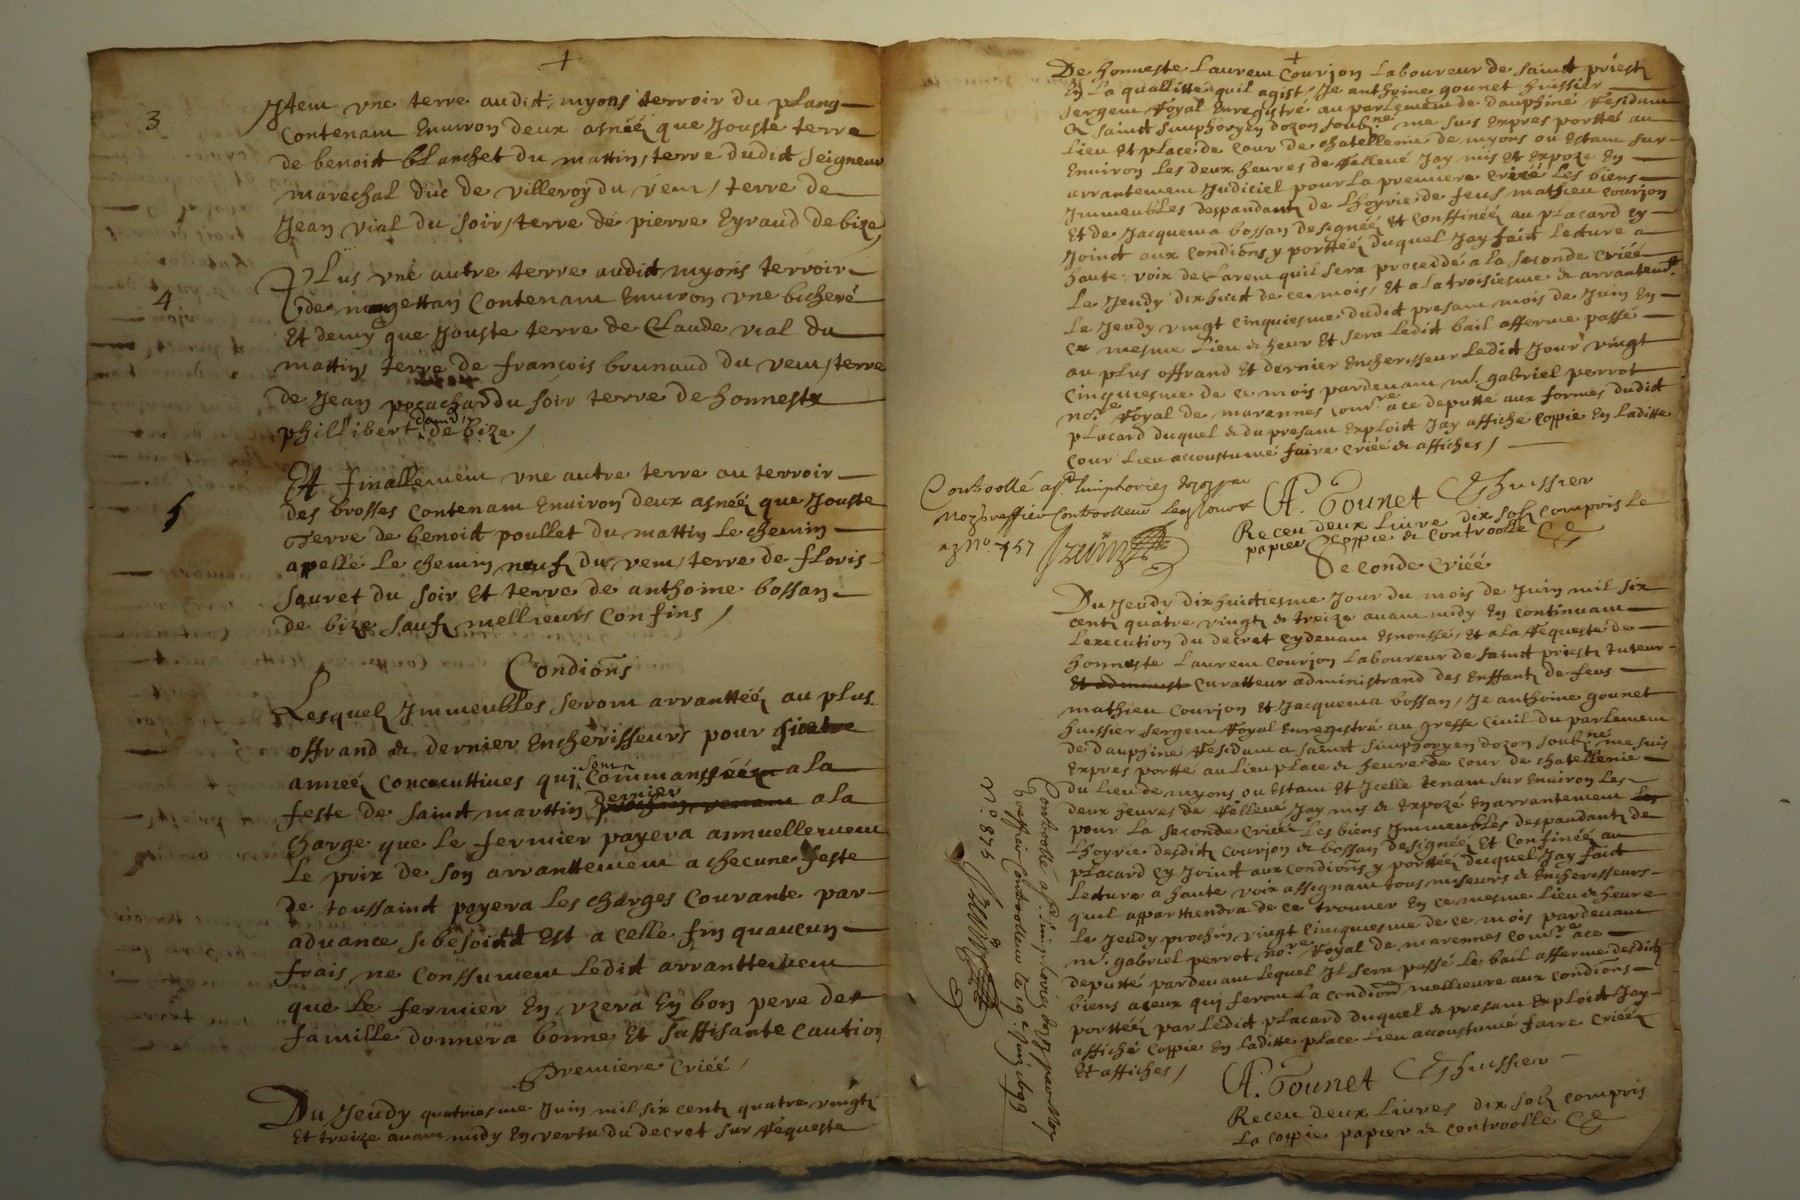 +
3
Item une terre audit myons terroir du plang
contenant environ deux asnéé que jouste terre
de benoict blanchet du mattin, terre dudict seigneur
marechal duc de villeroy du vent, terre de
Jean vial du soir, terre de pierre Eyraud de bize,
Plus une autre terre audict myons terroir
4
de mongettan contenant environ une bicheré
Et demy que jouste terre de Claude vial du
mattin, terre de françois brunaud du vent, terre
de Jean pocachard du soir terre de honneste
phillibert damd. de bize,
Et finallement une autre terre au terroir
5
des brosses contenant environ deux asnéé que Jouste
Terre de benoict poullet du mattin le chemin
apellé le chemin neuf du vent, terre de floris
sauret du soir Et terre de anthoine bossan
de bize sauf mellieurs confins,
Condions
Lesquels Immeubles seront arranttéé au plus
offrand & dernier Encherisseurs pour quatre
annéé concecuttives qui sont commansséé a la
feste de sainct marttin dernier a la
charge que le fermier payera annuellement
le prix de son arranttement a checune feste
de toussainct payera les charges courante par
advance si besoict Est a celle fin quaucun
frais ne conssument ledict arranttement
que le fermier En uzera En bon pere de
famille donnera bonne Et suffisante caution
Premiere Criéé,
Du Jeudy quatriesme Juin mil six cents quatre vingts
Et treize avant midy En vertu du decret sur requeste
+
De honneste Laurent Courjon Laboureur de sainct priest
En la quallitté quil agist, Je anthoine gounet huissier
sergent Royal Enregistré au parlement de dauphiné residant
a sainct simphoryen dozon soubz.né me suis Expres portté au
Lieu Et place de cour de chatellenie de myons ou Estant sur
Environ les deux heures de rellevé Jay mis Et Expozé En
arrantement Judiciel pour la premiere criéé les biens
Immeubles despandants de lhoyrie de feus mathieu courjon
Et de Jacquema bossan designéé Et conffinéé au placard cy
Joinct aux condions y porttéé duquel Jay faict lecture a
haute voix declarent quil sera proceddé a la seconde criéé
le Jeudy dix huict de ce mois, Et a la troisiesme & arrantemt.
le Jeudy vingt cinquiesme dudict presant mois de Juin En
ce mesme lieu & heur Et sera ledict bail afferme passé
au plus offrand Et dernier Encherisseur ledict Jour vingt
cinquiesme de ce mois pardevant me. gabriel perrot
nore. Royal de marannes comre. a ce deputté aux formes dudict
placard duquel & du presant Exploict Jay affiché coppie En laditte
cour lieu accoustumé faire criéé & affiches,
Controllé a St. Simphorien dozon par
A. Gounet Huissier
Moy greffier Controolleur
Receu deux livre dix solz compris le
No. 757
papier coppie & controolle
Seconde Criéé
Du Jeudy dix huictiesme Jour du mois de Juin mil six
cents quatre vingts & treize avant midy En continuant
lexecution du decret cy devant Esnonssé, Et a la requeste de
honneste Laurent courjon Laboureur de sainct priest tuteur
Et administ curatteur administrand des Enffants de feus
mathieu courjon Et Jacquema bossan, Je anthoine gounet
huissier sergent Royal Enregistré au greffe civil du parlement
de dauphiné residant a sainct simphoryen dozon soubz.né me suis
Expres portté au lieu place & heure de cour de chatellenie
du lieu de myons ou Estant Et Jcelle tenant sur Environ les
deux heures de rellevé Jay mis & Expozé En arrantement les
pour la seconde criéé les biens Immeubles despandants de
lhoyrie desdicts courjon & bossan designéé Et confinéé au
placard cy joinct aux condions y porttéé duquel Jay faict
lecture a haute voix assignant tous miseurs & Encherisseurs
quil appartiendra de ce trouver En ce mesme lieu & heure
le Jeudy prochin vingt cinquiesme de ce mois pardevant
me. gabriel perrot nore. Royal de marennes comre. a ce
deputté pardevant lequel Jl sera passé le bail afferme desdicts
biens a ceux qui feront la condion mellieure aux condions
porttéé par ledict placard duquel & presant Exploict Jay
affiché coppie En laditte place lieu accoustumé faire criéé
Et affiches,
A. Gounet Huissier
Receu deux livres dix solz compris
la coppie papier & controolle
Controollé a St. Simphorien dozon par Moy
greffier Controolleur le 19e. Juin 1693
No. 874